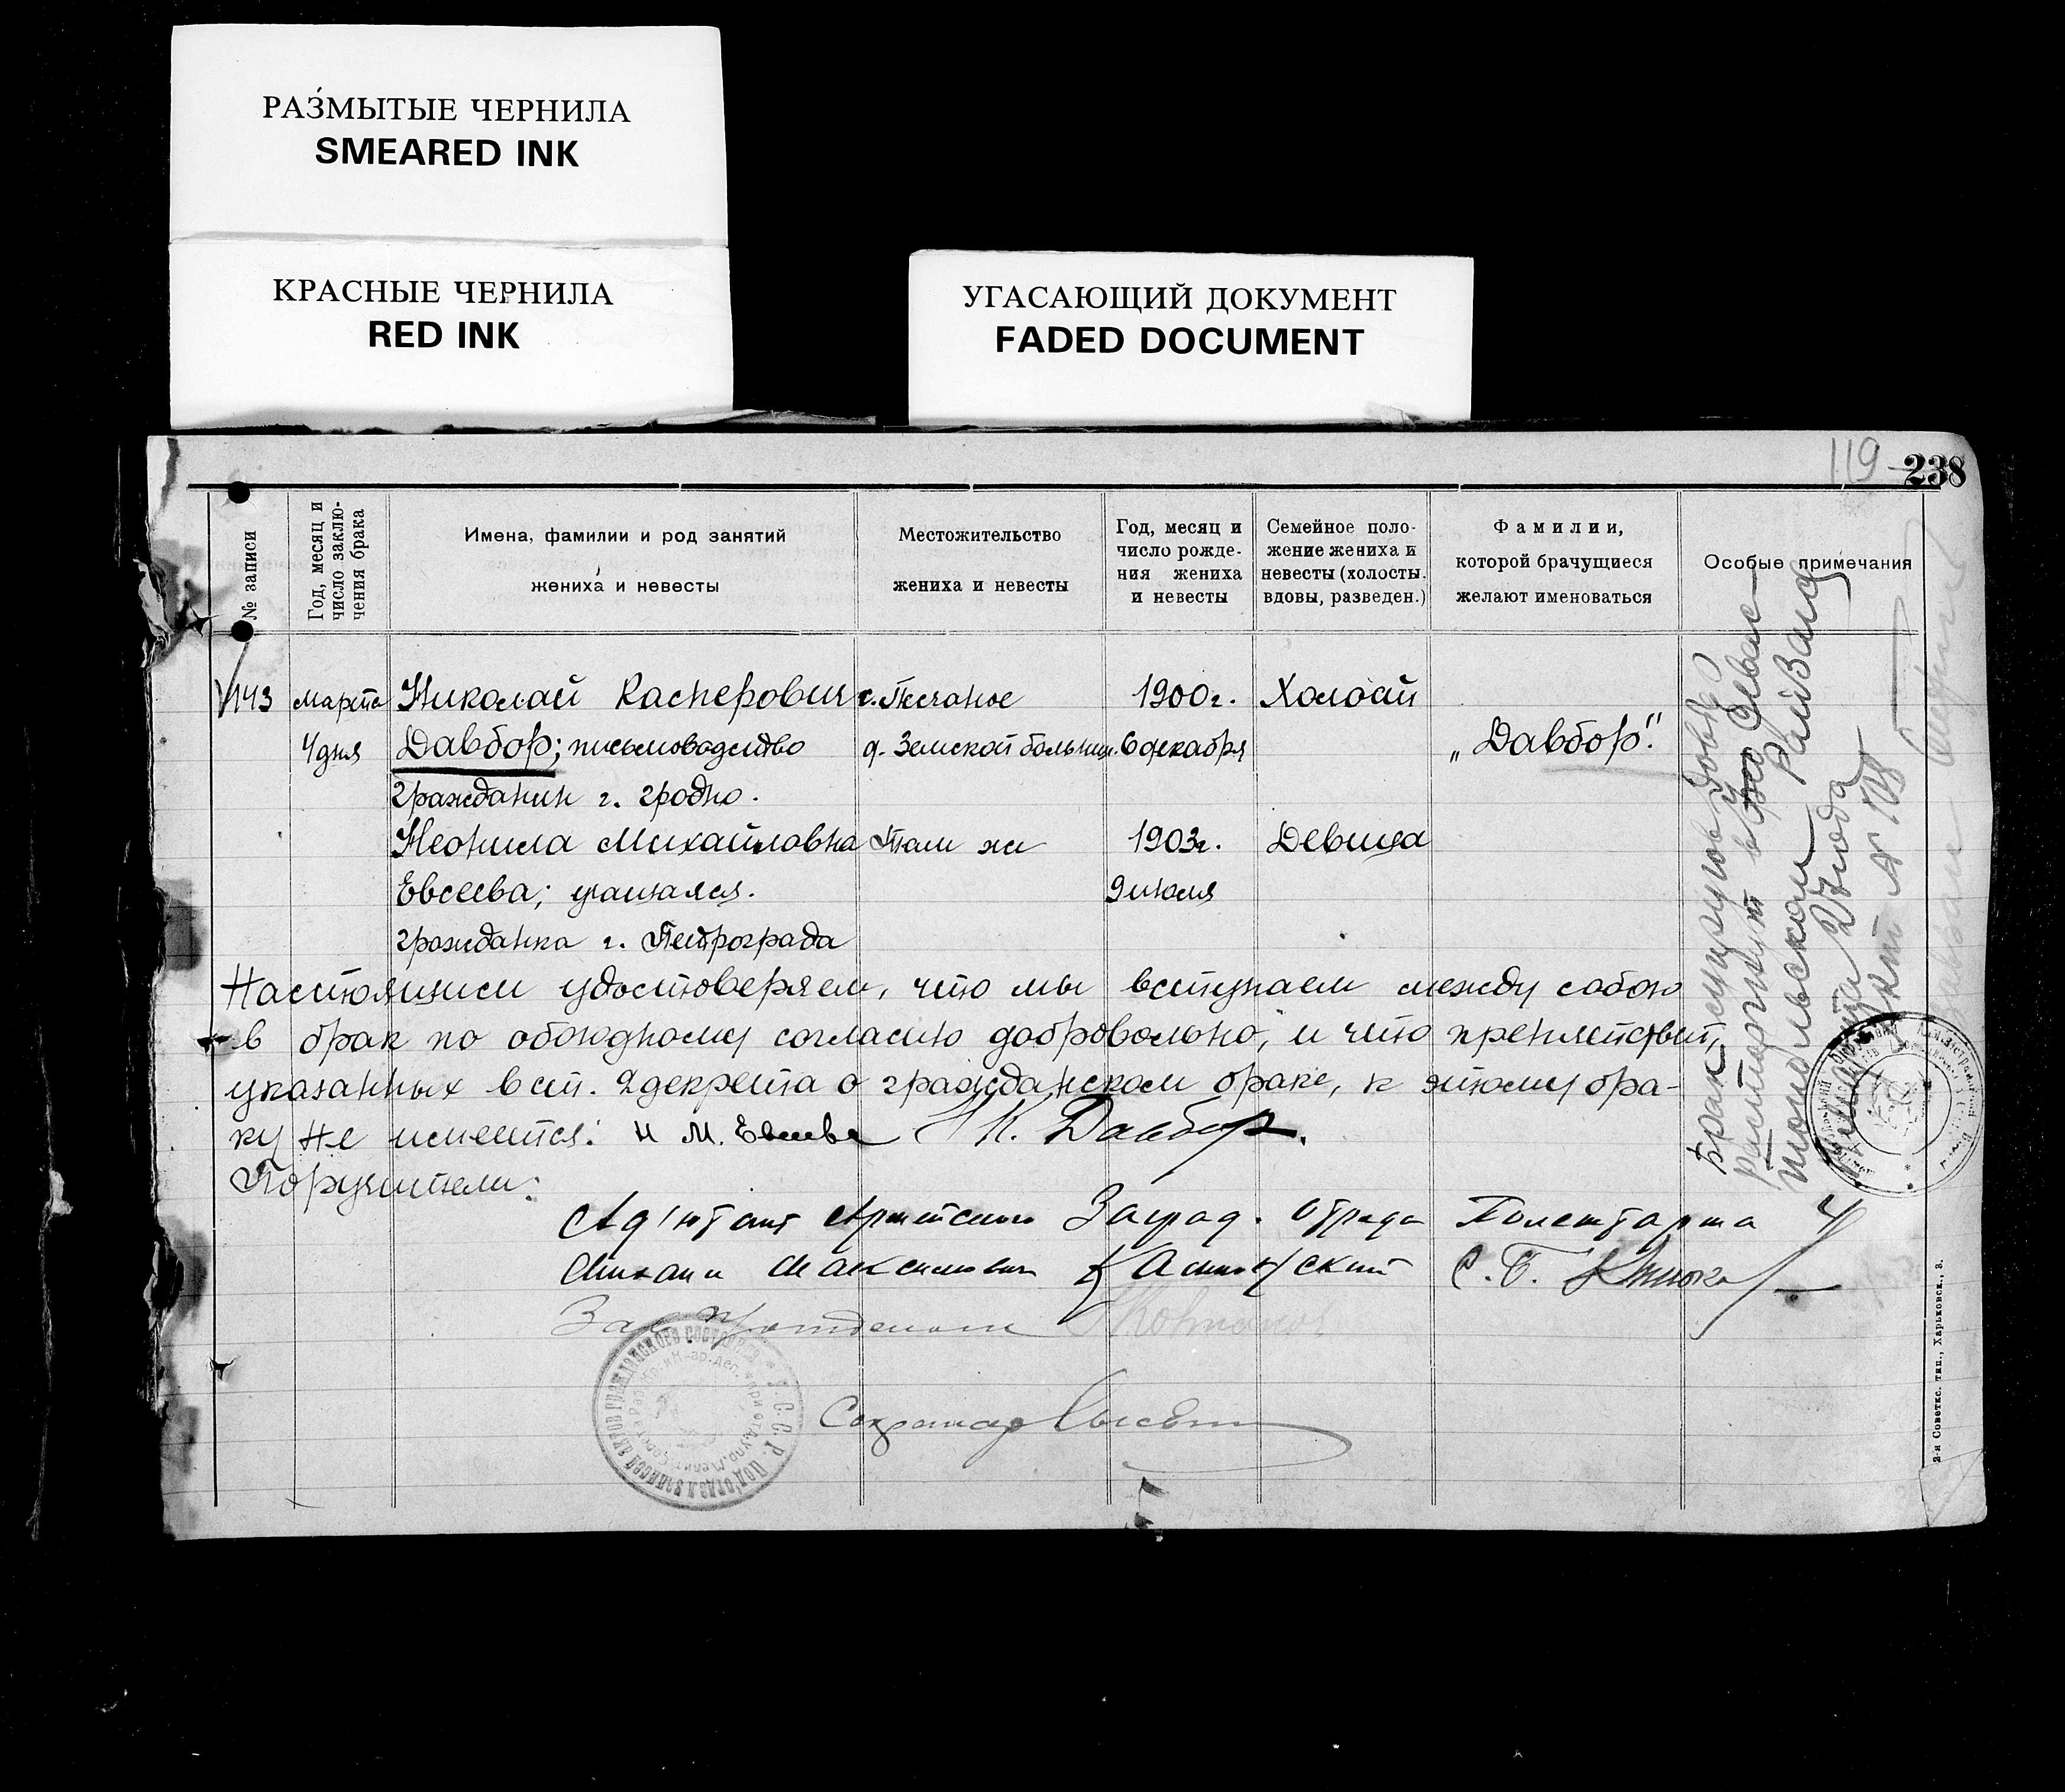 РАЗМЫТЫЕ ЧЕРНИЛА
SMEARED INK
КРАСНЫЕ ЧЕРНИЛА
RED INK
УГАСАЮЩИЙ ДОКУМЕНТ
FADED DOCUMENT
119 238
№ записи
Год, месяц и
число заклю-
чения брака
Имена, фамилии и род занятий
жениха и невесты
Местожительство
жениха и невесты
Год, месяц и
число рожде-
ния жениха
и невесты
Семейное поло-
жение жениха и
невесты (холосты,
вдовы, разведен.)
Фамилии,
которой брачущиеся
желают именоваться
Особые примечания
143 марта Николай Касперович с. Песчаное 1900г. Холост
4 дня Давбор; письмоводство д. Земской больниц. 6 декабря „Давбор".
гражданин г. Гродно.
Неонила Михайловна Там же 1903г. Девица
Евсеева; учащаяся. 9 июля
гражданка г. Петрограда
Настоящим удостоверяем, что мы вступаем между собою
в брак по обоюдному согласию добровольно, и что препятствий,
указанных в ст. 2 декрета о гражданском браке, к этому бра-
ку не имеется: Н М. Евсеева Н К. Давбор.
Поручители:
Ад'ютант Армейского Заград. отряда
Михаил Максимович
Зав. Подотделом
Секретарь
Брак
расторгнут в
2-я Советск. тип., Харьковск., 3.